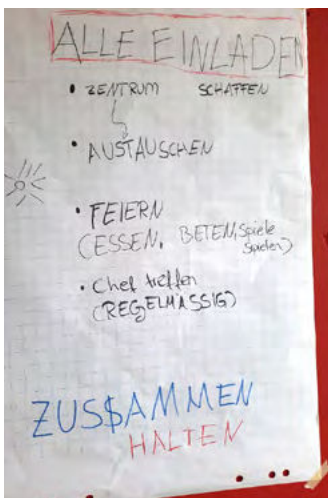 ALLE EINLADEN
• ZENTRUM SCHAFFEN
• AUSTAUSCHEN
• FEIERN
(ESSEN, BETEN, Spiele
Spielen)
• Chef treffen
(REGELMÄSSIG)
ZUS$AMMEN
HALTEN